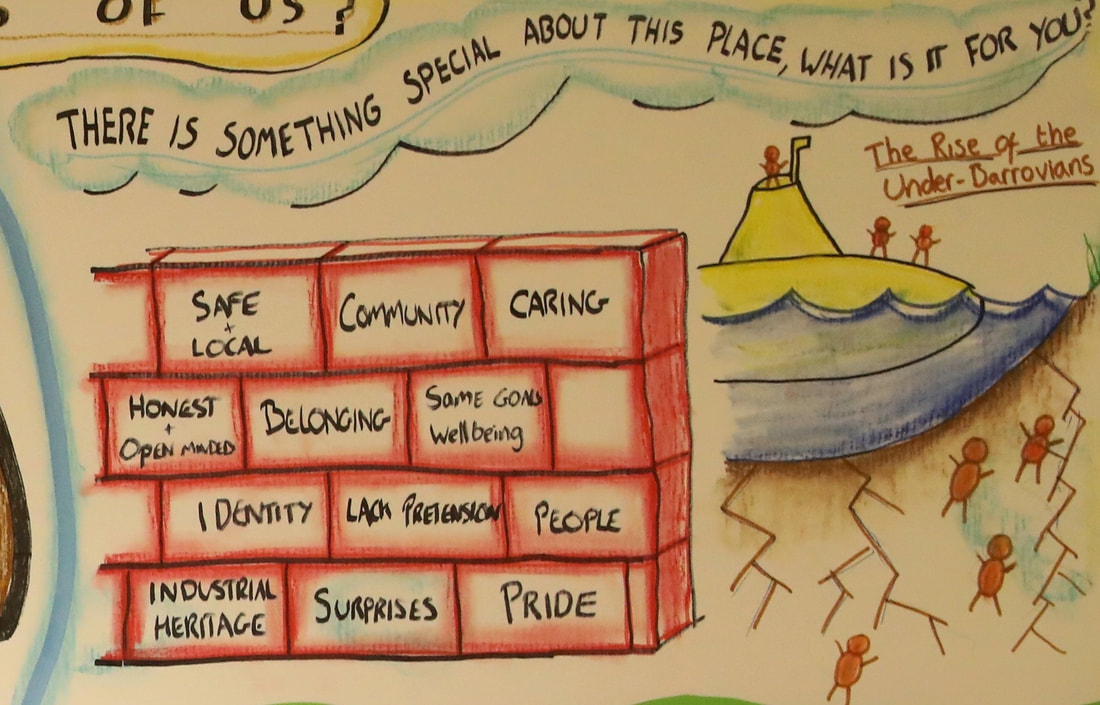 OF US?
THERE IS SOMETHING SPECIAL ABOUT THIS PLACE, WHAT IS IT FOR YOU?
The Rise of the
Under-Barrovians
SAFE
+
LOCAL
COMMUNITY
CARING
HONEST
+
OPEN MINDED
BELONGING
SAME GOALS
Wellbeing
IDENTITY
LACK PRETENSION
PEOPLE
INDUSTRIAL
HERITAGE
SURPRISES
PRIDE